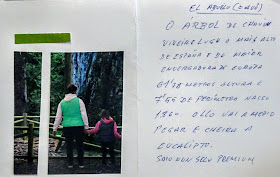 EL ABUELO (O AVÓ)
O ÁRBOL DE CHAVÍN
VIVEIRO LUGO O MAIS ALTO
DE ESPAÑA E DE MAIOR
ENVERGADURA DE EUROPA
61'8 METROS ALTURA E
7'65 DE PERÍMETRO NACEO
1860. OLLO VAI A MEDIO
PEGAR E CHEIRA A
EUCALIPTO.
SOIO NUN SELU PREMIUM